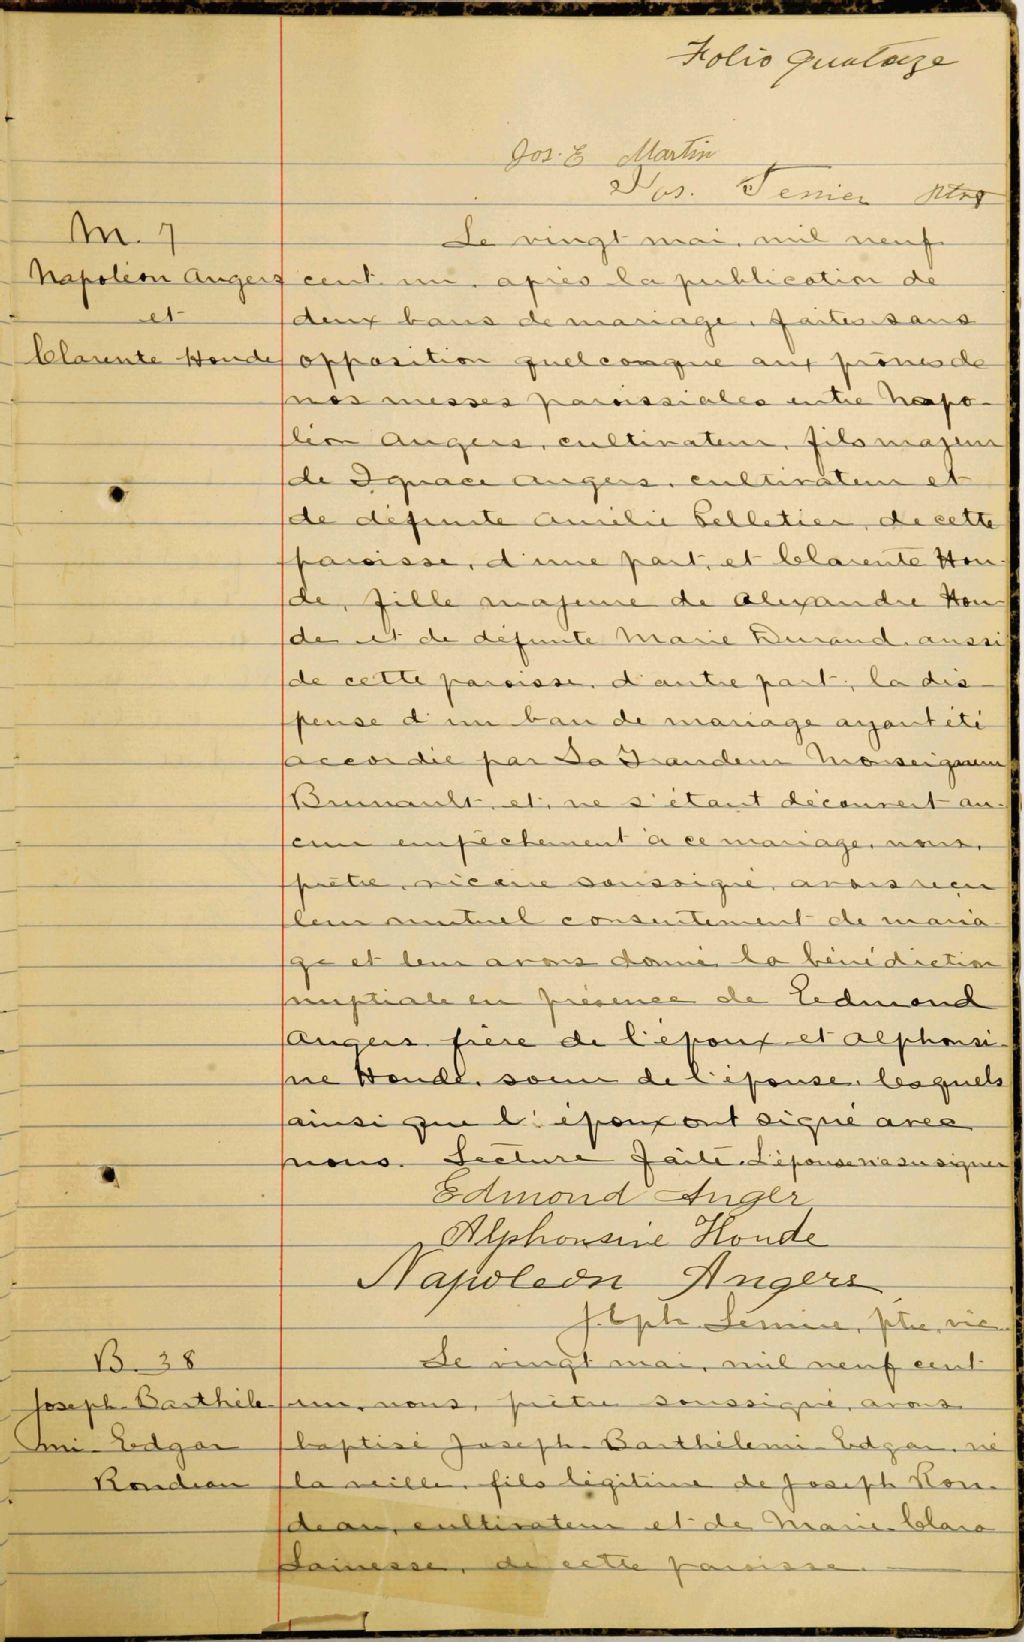 Folio quatorze
Jos. E Martin
Jos. Tessier Ptre
M. 7
Napoléon Angers
et
Clarente Houde
Le vingt mai, mil neuf
cent un, après la publication de
deux bans de mariage, faites sans
opposition quelconque aux prônes de
nos messes paroissiales entre Napo-
léon Angers, cultivateur, fils majeur
de Ignace Angers, cultivateur et
de défunte Aurélie Pelletier, de cette
paroisse, d'une part, et Clarente Hou-
de, fille majeure de Alexandre Hou-
de et de défunte Marie Durand, aussi
de cette paroisse, d'autre part; la dis-
pense d'un ban de mariage ayant été
accordée par Sa Grandeur Monseigneur
Brunault, et, ne s'étant découvert au-
cun empêchement à ce mariage, nous,
prêtre, vicaire soussigné, avons reçu
leur mutuel consentement de maria-
ge et leur avons donné la bénédiction
nuptiale en présence de Edmond
Angers frère de l'époux et Alphonsi-
ne Houde, soeur de l'épouse, lesquels
ainsi que l'époux ont signé avec
nous. Lecture faite. L'épouse n'a su signer
Edmond Anger
Alphonsine Houde
Napoleon Angers
Lemire, ptre, vic.
B. 38
Joseph-Barthéle-
mi-Edgar
Rondeau
Le vingt mai, mil neuf cent
un, nous, prêtre soussigné, avons
baptisé Joseph-Barthélemi-Edgar, né
la veille, fils légitime de Joseph Ron-
deau, cultivateur et de Marie-Clara
Lainesse, de cette paroisse.